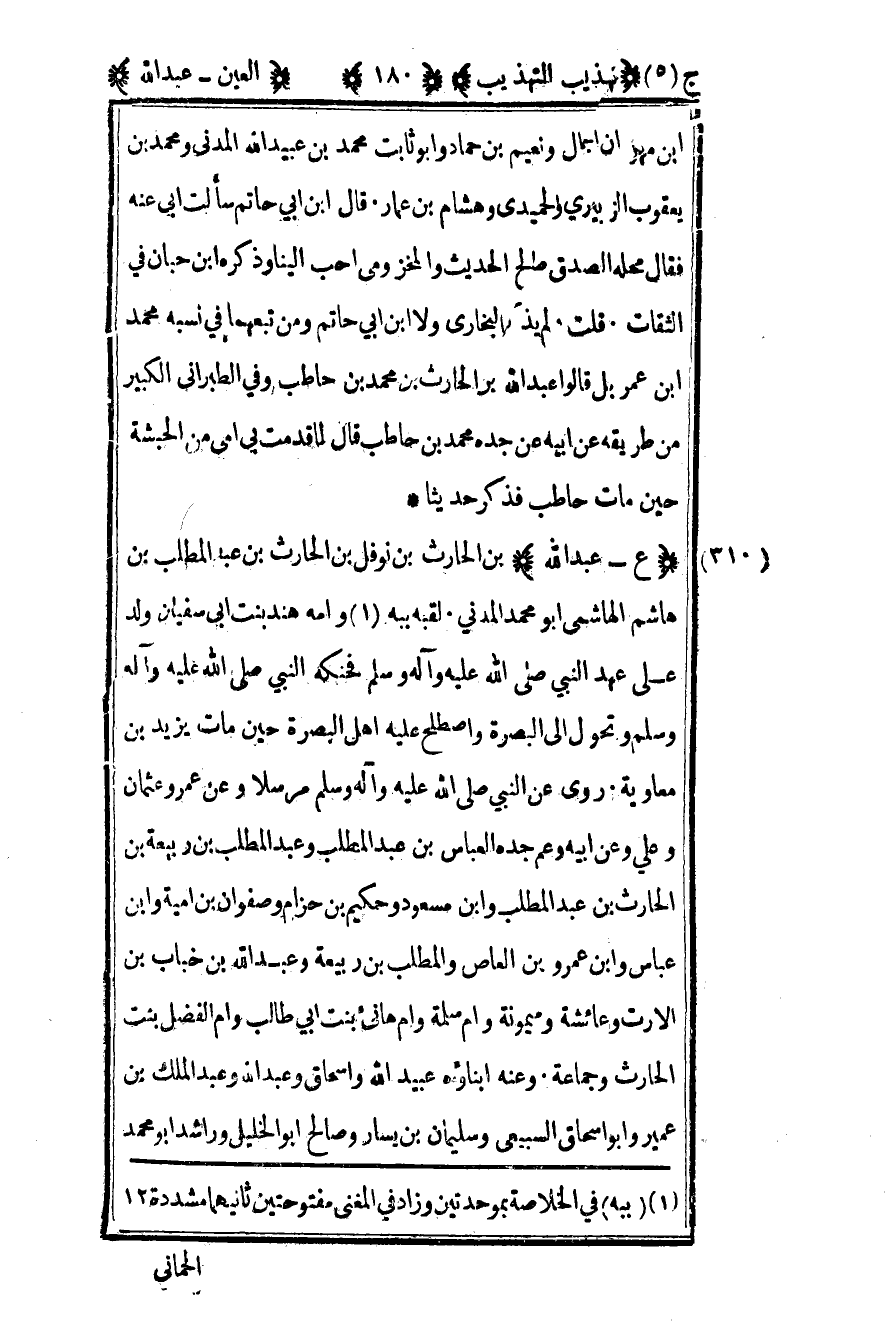 ج (٥) ﴿تهذيب التهذيب﴾ ﴿١٨٠﴾ ﴿العين - عبدالله﴾
ابن مهران الجمال ونعيم بن حماد وابوثابت محمد بن عبيدالله المدنى ومحمد بن
يعقوب الزبيري والحميدى وهشام بن عمار· قال ابن ابي حاتم سألت ابي عنه
فقال محله الصدق صالح الحديث والمخزومى احب الينا وذكره ابن حبان في
الثقات · قلت · لم يذكر البخارى ولا ابن ابي حاتم ومن تبعهما في نسبه محمد
ابن عمر بل قالوا عبدالله بن الحارث بن محمد بن حاطب وفي الطبرانى الكبير
من طريقه عن ابيه عن جده محمد بن حاطب قال لما قدمت بي امى من الحبشة
حين مات حاطب فذكر حديثا *
(٣١٠) ﴿ع - عبدالله﴾ بن الحارث بن نوفل بن الحارث بن عبد المطلب بن
هاشم الهاشمى ابو محمد المدني · لقبه ببه (١) وامه هند بنت ابي سفيان ولد
على عهد النبي صلى الله عليه وآله وسلم فحنكه النبي صلى الله عليه وآله
وسلم وتحول الى البصرة واصطلح عليه اهل البصرة حين مات يزيد بن
معاوية · روى عن النبي صلى الله عليه وآله وسلم مرسلا وعن عمر وعثمان
وعلي وعن ابيه وعم جده العباس بن عبدالمطلب وعبدالمطلب بن ربيعة بن
الحارث بن عبدالمطلب وابن مسعود وحكيم بن حزام وصفوان بن امية وابن
عباس وابن عمرو بن العاص والمطلب بن ربيعة وعبدالله بن خباب بن
الارت وعائشة وميمونة وام سلمة وام هانئ بنت ابي طالب وام الفضل بنت
الحارث وجماعة · وعنه ابناؤه عبيد الله واسحاق وعبدالله وعبدالملك بن
عمير وابواسحاق السبيعى وسليمان بن يسار وصالح ابوالخليل وراشد ابو محمد
(١) (ببه) في الخلاصة بموحدتين وزاد في المغنى مفتوحتين ثانيهما مشددة ١٢
الحماني